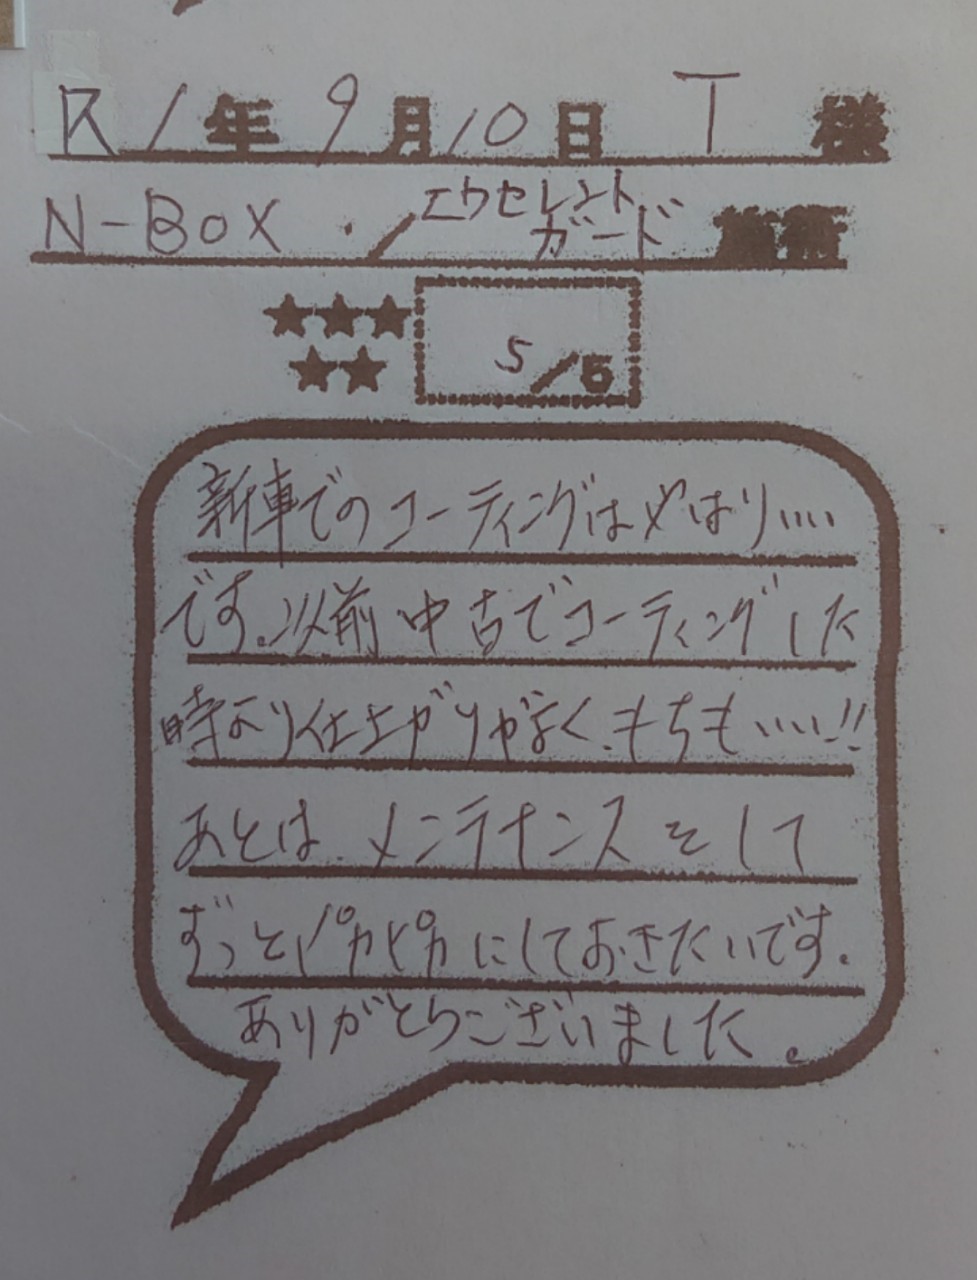 R1年9月10日 T 様
N-BOX ／エクセレント
ガード 施術
★★★
★★
5/5
新車でのコーティングはやはりいい
です。以前中古でコーティングした
時より仕上がりがよく、もちもいい!!
あとは、メンテナンスをして
ずっとピカピカにしておきたいです。
ありがとうございました。